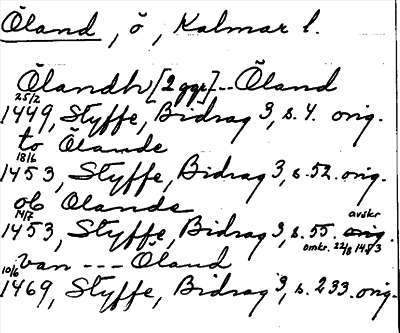 Öland, ö, Kalmar l.
Ölandh [2 ggr] -- Öland
25/2
1449, Styffe, Bidrag 3, s. 4. orig.
to Ölamde
18/6
1453, Styffe, Bidrag 3, s. 52. orig.
ob Olande
14/7 avskr
1453, Styffe, Bidrag 3, s. 55. orig.
omkr. 22/8 1453
van --- Öland
10/6
1469, Styffe, Bidrag 3, s. 233. orig.